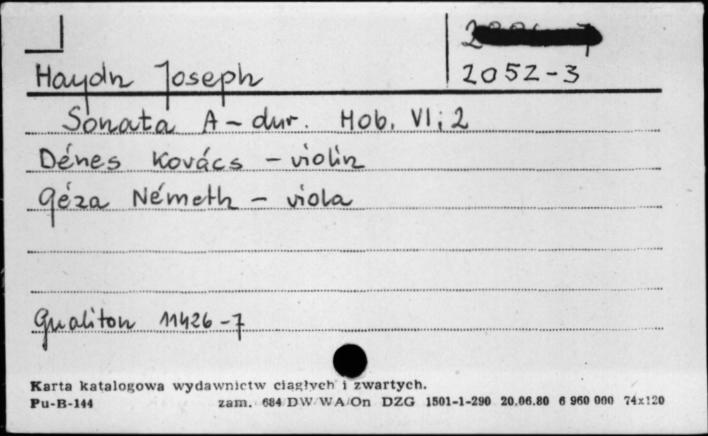 Haydn Joseph
2052-3
Sonata A-dur. Hob. VI; 2
Dénes Kovács - violin
Géza Németh - viola
Qualiton 11426-7
Karta katalogowa wydawnictw ciągłych i zwartych.
Pu-B-144 zam. 684/DW/WA/On DZG 1501-1-290 20.06.80 6 960 000 74x120